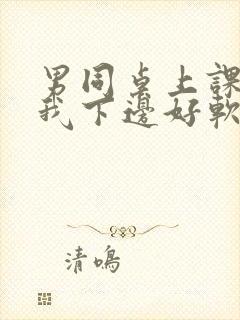 男同桌上課
我下邊好軟
清鳴